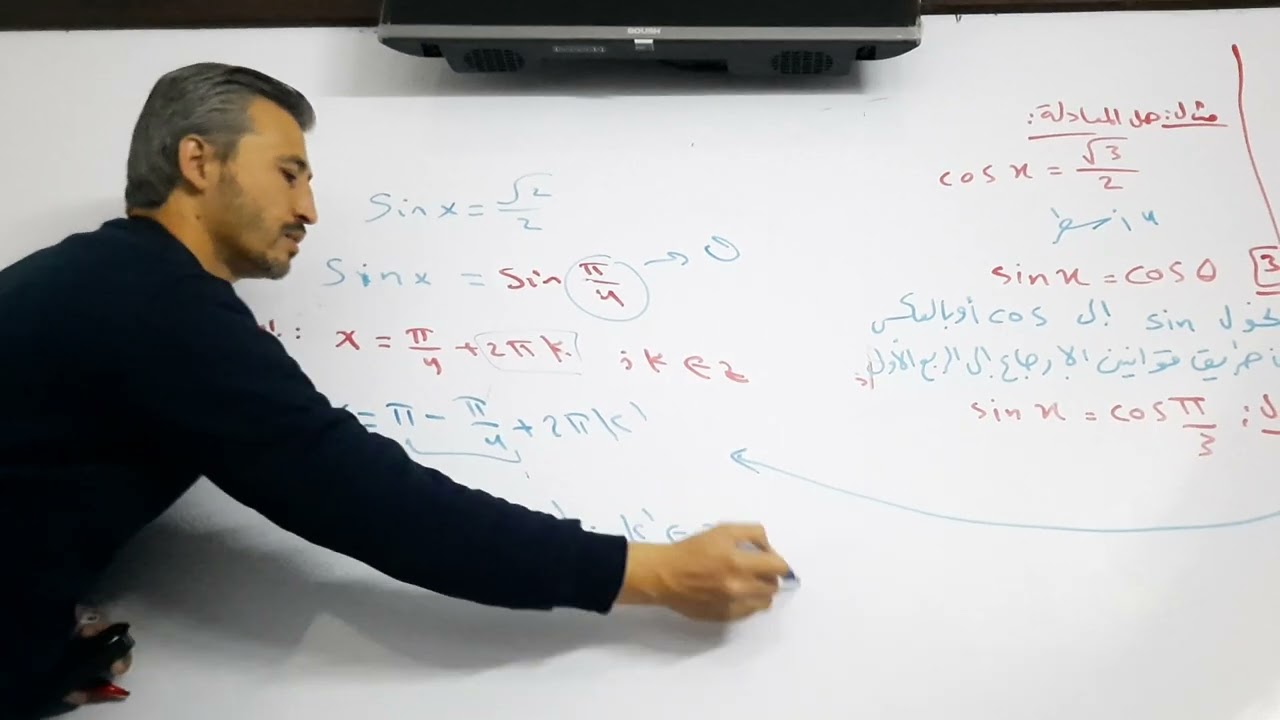 BOUSH
مثال: حل المعادلة:
cos x = √3/2
sin x = cos θ 3
sin إلى cos أو بالعكس
طريق قوانين الإرجاع إلى الربع الأول
sin x = cos π/3
sin x = √2/2
sin x = sin π/4 → θ
: x = π/4 + 2πk ; k ∈ z
= π - π/4 + 2πk'
; k' ∈